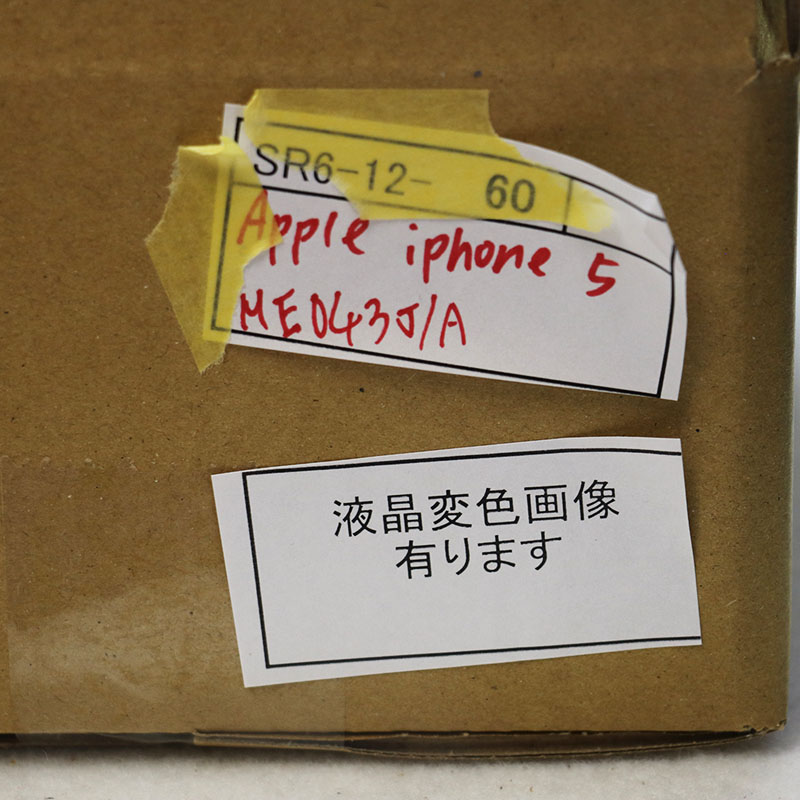 SR6-12- 60
Apple iphone 5
ME043J/A
液晶変色画像
有ります